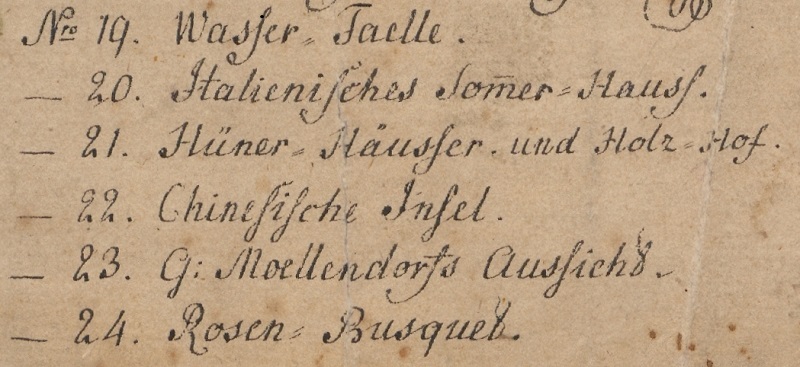 Nro 19. Wasser-Faelle.
— 20. Italienisches Som̅er-Hauss.
— 21. Hüner-Häusser. und Holz-Hof.
— 22. Chinesische Insel.
— 23. G: Moellendorfs Aussicht.
— 24. Rosen-Busquet.